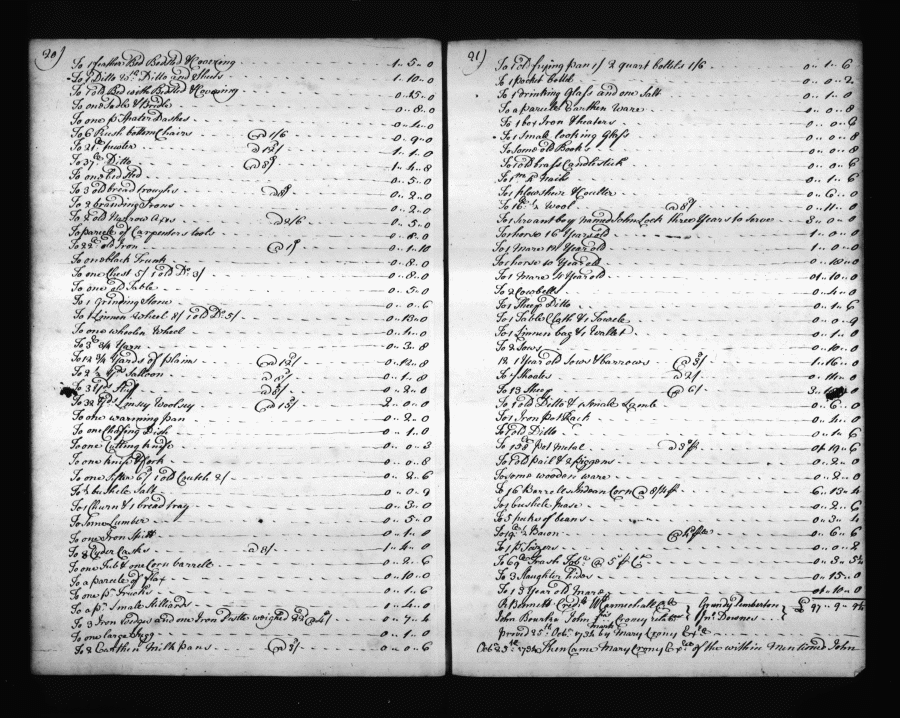 20)
To 1 feather Bed Bedsted & Covering 1.. 5.. 0
To 1 Ditto Ditto and Sheets 1.. 10.. 0
To 1 old Bed with Bedsted & Covering 0.. 15.. 0
To one Sadle & Bridle 0.. 8.. 0
To one pr Spaterdashes 0.. 4.. 0
To 6 Rush bottom Chairs @ 1/6 0.. 9.. 0
To 21 pewter @ 12/ 1.. 1.. 0
To 37 Ditto @ 8 1.. 4.. 8
To one Bedsted 0.. 5.. 0
To 3 old bread troughs @ 8 0.. 2.. 0
To 2 branding Irons 0.. 2.. 0
To 2 old Narrow axes @ 2/6 0.. 5.. 0
To parcele of Carpenters tools 0.. 8.. 0
To 22 old Iron @ 1 0.. 1.. 10
To one black Trunk 0.. 8.. 0
To one Chest 5/ 1 old Do 3/ 0.. 8.. 0
To one old Table 0.. 5.. 0
To 1 grinding Stone 0.. 0.. 6
To 1 Linnen Wheel 8/ 1 old Do 5/ 0.. 13.. 0
To one woolen Wheel 0.. 4.. 0
To 3 3/4 Yarn 0.. 3.. 8
To 12 3/4 Yards of plains @ 12/ 0.. 12.. 8
To 2 1/2 Yds 0.. 1.. 8
To 3 Yds Stuff @ 8/ 0.. 2.. 0
To 32 Yds Linsey Woolsey @ 15/ 2.. 0.. 0
To one warming pan 0.. 4.. 0
To one Chafing Dish 0.. 1.. 0
To one Cutting knife 0.. 0.. 3
To one knife & fork 0.. 0.. 8
To one Sifter 6/ 1 old 2/ 0.. 2.. 6
To 1/2 bushele Salt 0.. 0.. 9
To 1 Churn & 1 bread tray 0.. 3.. 0
To some Lumber 0.. 5.. 0
To one Iron Spitt 0.. 1.. 0
To 3 Cyder Casks @ 8/ 1.. 4.. 0
To one Tub & one Corn barrell 0.. 2.. 6
To a parcele of flax 0.. 10.. 0
To one pr 0.. 1.. 6
To a pr Small Stilliards 0.. 4.. 0
To 3 Iron Wedges and one Iron Pestle weighed 22 @ 4/ 0.. 7.. 4
To one large Jugg 0.. 1.. 0
To 2 Earthen Milk pans @ 3/ 0.. 0.. 6
21)
To 1 old frying pan 1/ 2 quart bottels 1/6 0.. 1.. 6
To 1 pocket bottel 0.. 0.. 2
To 1 drinking Glass and one Salt 0.. 1.. 0
To a parcele Earthen Ware 0.. 0.. 8
To 1 box Iron & heaters 0.. 0.. 6
To 1 Small looking Glass 0.. 0.. 8
To some old Books 0.. 0.. 8
To 1 old brass Candlestick 0.. 0.. 6
To 1 m Nails 0.. 1.. 6
To 1 plowshear & Coulter 0.. 6.. 0
To 16 1/2 Wool @ 8 0.. 11.. 0
To 1 Servant boy named John Lock three Years to Serve 8.. 0.. 0
To 1 horse 16 Year old 1.. 0.. 0
To 1 Mare 14 Year old 1.. 0.. 0
To 1 horse 10 Year old 0.. 10.. 0
To 1 Mare 4 Year old 01.. 10.. 0
To 2 Cowbells 0.. 4.. 0
To 1 Sheep Ditto 0.. 1.. 6
To 1 Table Cloth & 1 Towele 0.. 0.. 9
To 1 Linnen bag & 1 Wallet 0.. 1.. 0
To 2 Sows 0.. 10.. 0
12 1 Year old Sows & barrows @ 3/ 1.. 16.. 0
To 7 Shoates @ 2/ 0.. 14.. 0
To 13 Sheep @ 6/
To 1 old Ditto & 1 female Lamb 0.. 6.. 0
To 1 Iron Pot Rack 0.. 4.. 0
To 1 old Ditto 0.. 1.. 6
To 158 pot metal @ 3 01.. 19.. 6
To 1 old pail & 2 piggons 0.. 2.. 0
To some wooden ware 0.. 2.. 0
To 16 Barrells Indean Corn @ 8/4 6.. 13.. 4
To 1 bushele pease 0.. 2.. 6
To 5 pecks of beans 0.. 3.. 4
To 19 1/2 Bacon 0.. 6.. 6
To 1 pr Sizzers 0.. 0.. 2
To 69 Trash Tobo @ 5 0.. 3.. 5 1/2
To 3 Slaughter hides 0.. 15.. 0
To 1 3 Year old Mare 01.. 10.. 0
R Bennett Credr Wm Carmichall Do Grundy Pemberton £ 97.. 9..
John Bourke John Crony relats Jno Downes
mark
proved 25th Octr 1734 by Mary Crony Exx
Octr 25th 1734 Then Came Mary Crony Exx of the within mentioned John